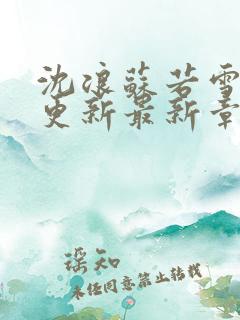 沈浪蘇若雪
更新最新章
瑶知
未经同意禁止转载